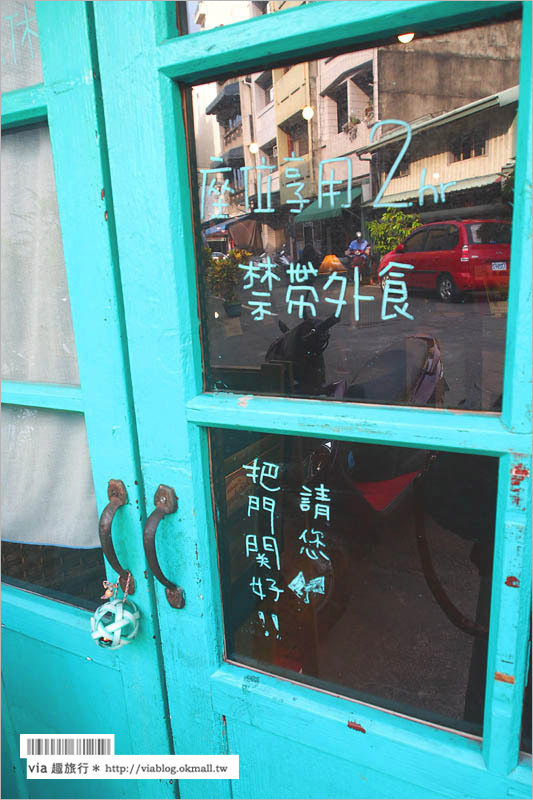 休
座位享用2hr
禁帶外食
請您
把門關好!!
via 趣旅行＊ http://viablog.okmall.tw